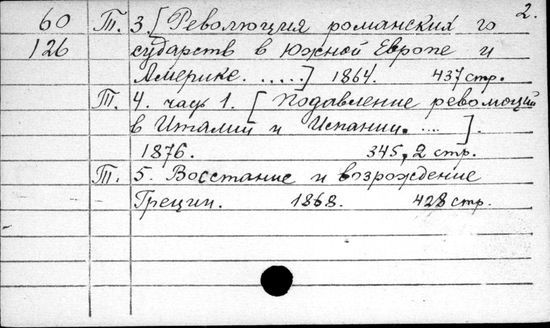 2.
60 Т. 3. [Революция романских го
126 сударств в Южной Европе и
Америке. .....] 1864. 437 стр.
Т. 4. часть 1. [Подавление революций
в Италии и Испании. ....].
1876. 345, 2 стр.
Т. 5. Восстание и возрождение
Греции. 1868. 428 стр.